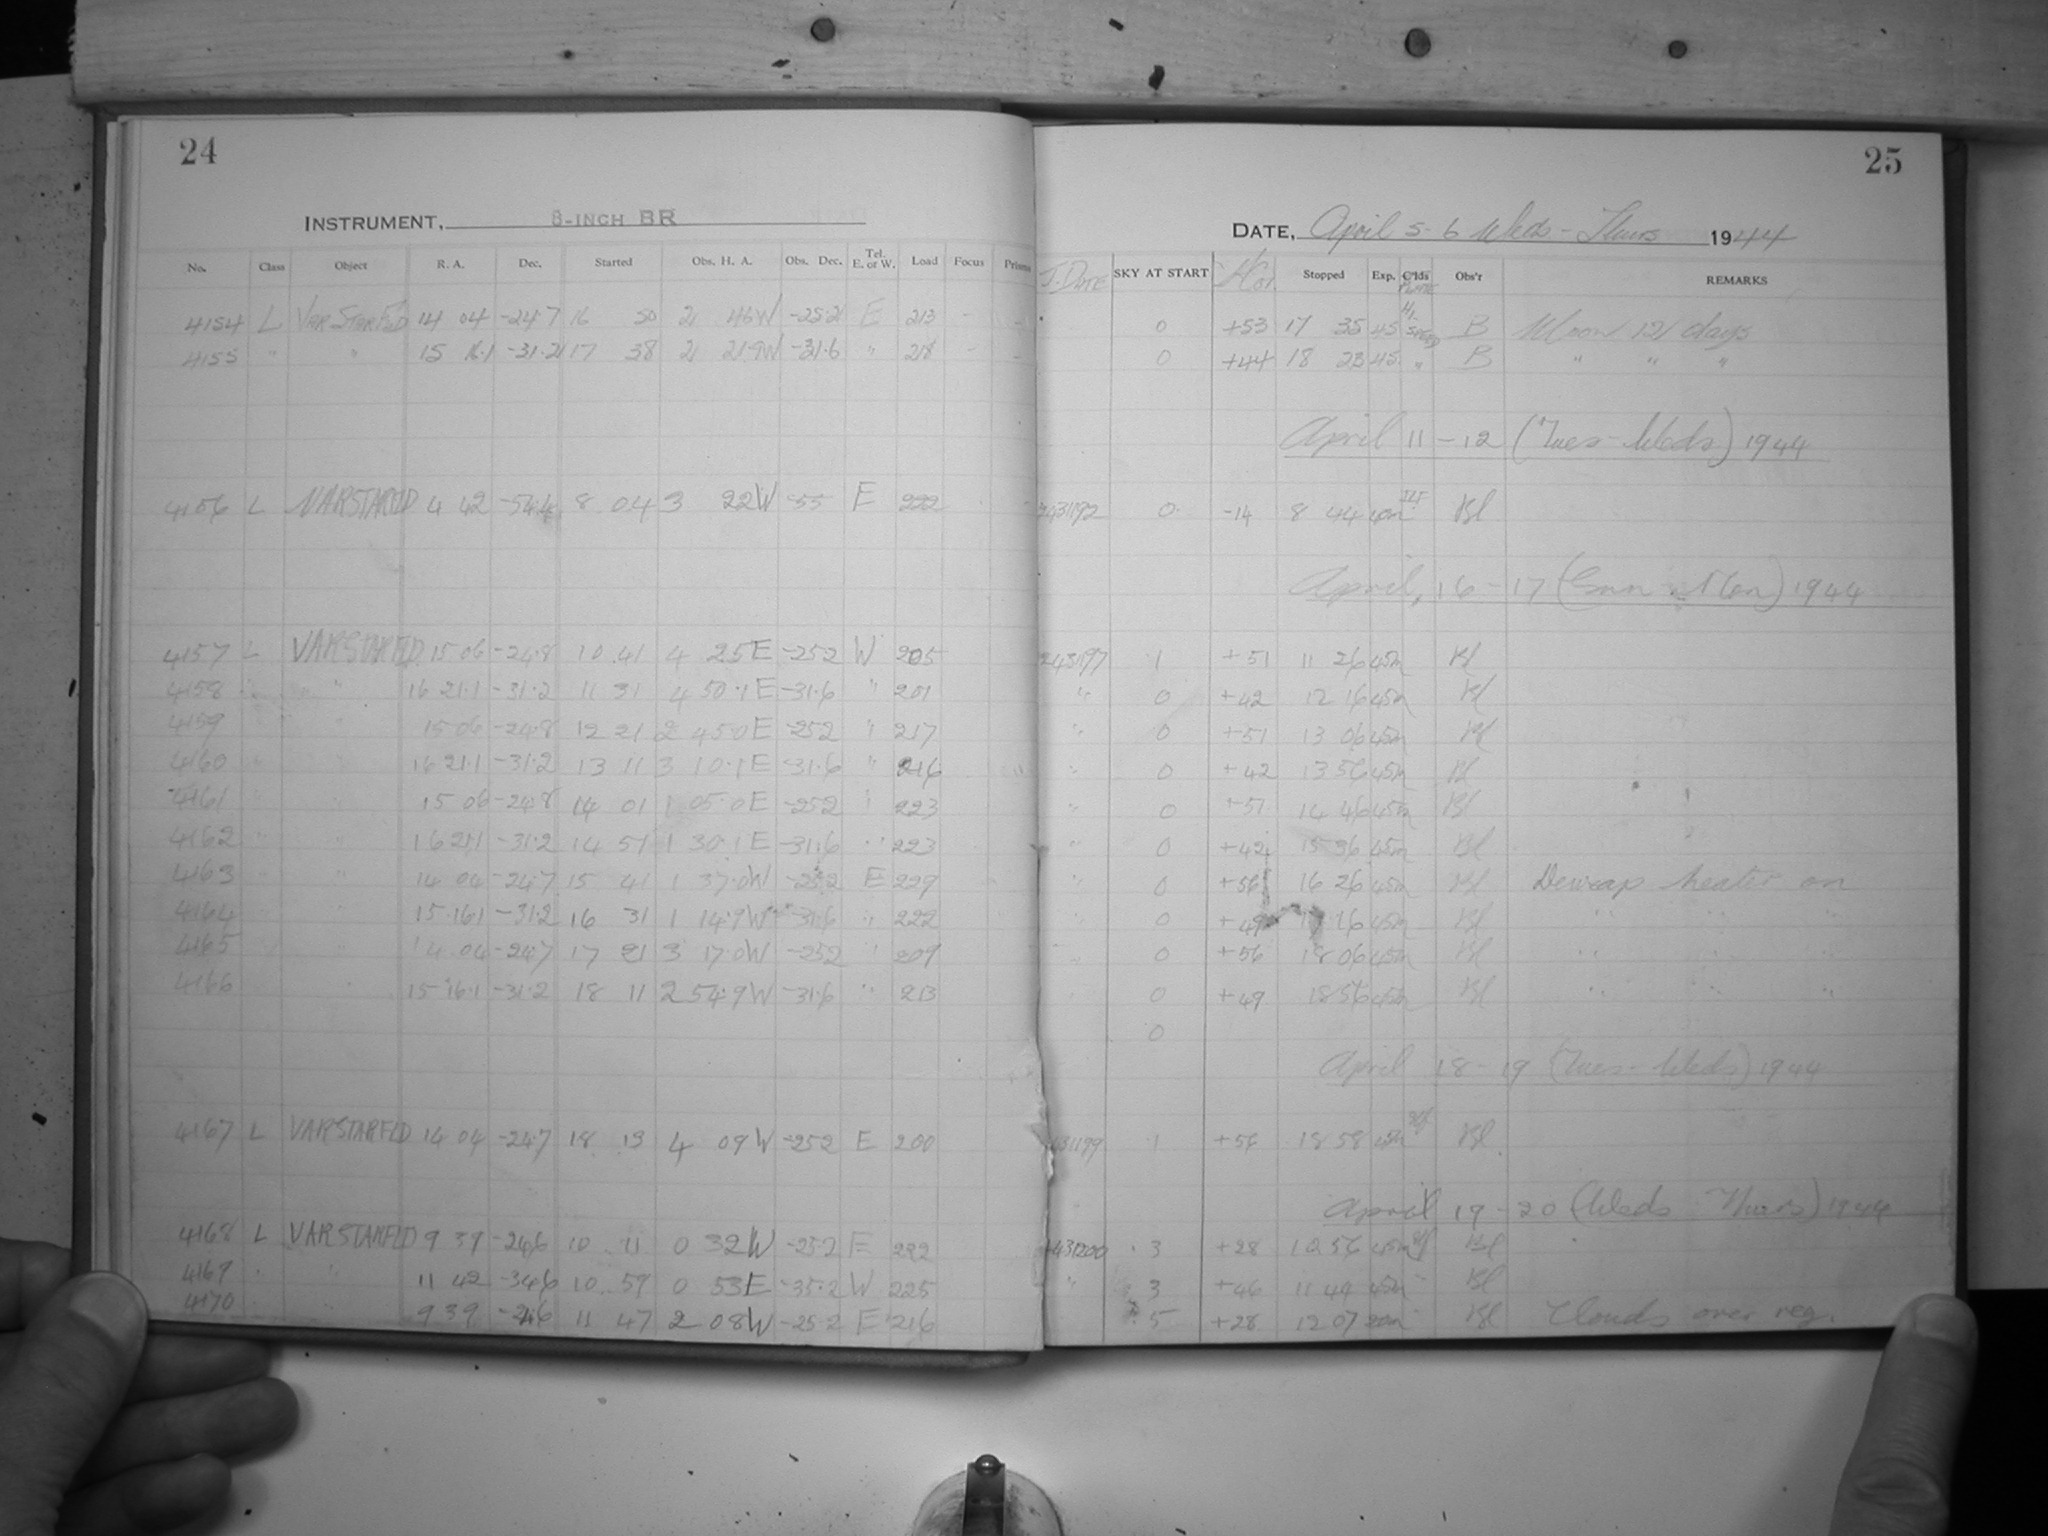 24
INSTRUMENT, 8-INCH BR
No. Class Object R. A. Dec. Started Obs. H. A. Obs. Dec. Tel. E. or W. Load Focus Prism
4154 L VAR STAR FLD 14 04 -24.7 16 50 2 46W -25.2 E 213 - -
4155 " " 15 16.1 -31.2 17 38 2 21.9W -31.6 " 218 - -
4156 L VARSTARFLD 4 42 -54.4 8 04 3 22W -55 E 222
4157 L VARSTARFLD 15 06 -24.8 10 41 4 25E -252 W 205
4158 " " 16 21.1 -31.2 11 31 4 50.1E -31.6 " 201
4159 " 15 06 -24.8 12 21 2 45.0E -252 " 217
4160 " " 16 21.1 -31.2 13 11 3 10.1E -31.6 " 216
4161 " " 15 06 -24.8 14 01 1 05.0E -252 " 223
4162 " " 16 21.1 -31.2 14 51 1 30.1E -31.6 " 223
4163 " 14 04 -24.7 15 41 1 37.0W -252 E 229
4164 " 15 16.1 -31.2 16 31 1 14.9W -31.6 " 222
4165 " 14 04 -24.7 17 21 3 17.0W -252 " 209
4166 " 15 16.1 -31.2 18 11 2 54.9W -31.6 " 213
4167 L VARSTARFLD 14 04 -24.7 18 13 4 09W -252 E 200
4168 L VARSTARFLD 9 39 -24.6 10 11 0 32W -25.2 E 222
4169 " " 11 42 -34.6 10 59 0 53E -35.2 W 225
4170 9 39 -24.6 11 47 2 08W -25.2 E 216
25
DATE, April 5-6 Weds - Thurs 1944
J. DATE SKY AT START H Cor. Stopped Exp. C'lds PLATE Obs'r REMARKS
0 +53 17 35 45 SPEED B Moon 12 days
0 +44 18 23 45 " B " " "
April 11-12 (Tues-Weds) 1944
2431192 0 -14 8 44 40m ILF Bl
April, 16-17 (Sun - Mon) 1944
2431197 1 +51 11 26 45m Bl
" 0 +42 12 16 45m Bl
" 0 +51 13 06 45m Bl
" 0 +42 13 56 45m Bl
" 0 +51 14 46 45m Bl
" 0 +42 15 36 45m Bl
" 0 +56 16 26 45m Bl Dewcap heater on
" 0 +49 17 16 45m Bl " " "
" 0 +56 18 06 45m Bl " " "
0 +49 18 56 45m Bl " " "
0
April 18-19 (Tues-Weds) 1944
2431199 1 +56 18 58 45m Bl
April 19-20 (Weds - Thurs) 1944
2431200 3 +28 10 56 45m Bl
" 3 +46 11 44 45m Bl
5 +28 12 07 20m Bl Clouds over reg.